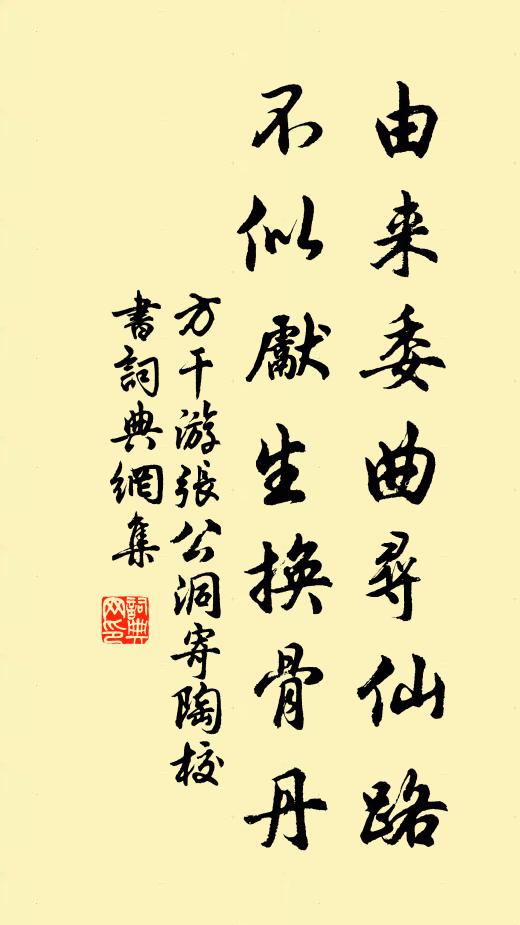 由来委曲尋仙路
不似獻生換骨丹
方干游張公洞寄陶校
書詞典網集
詞典
网印